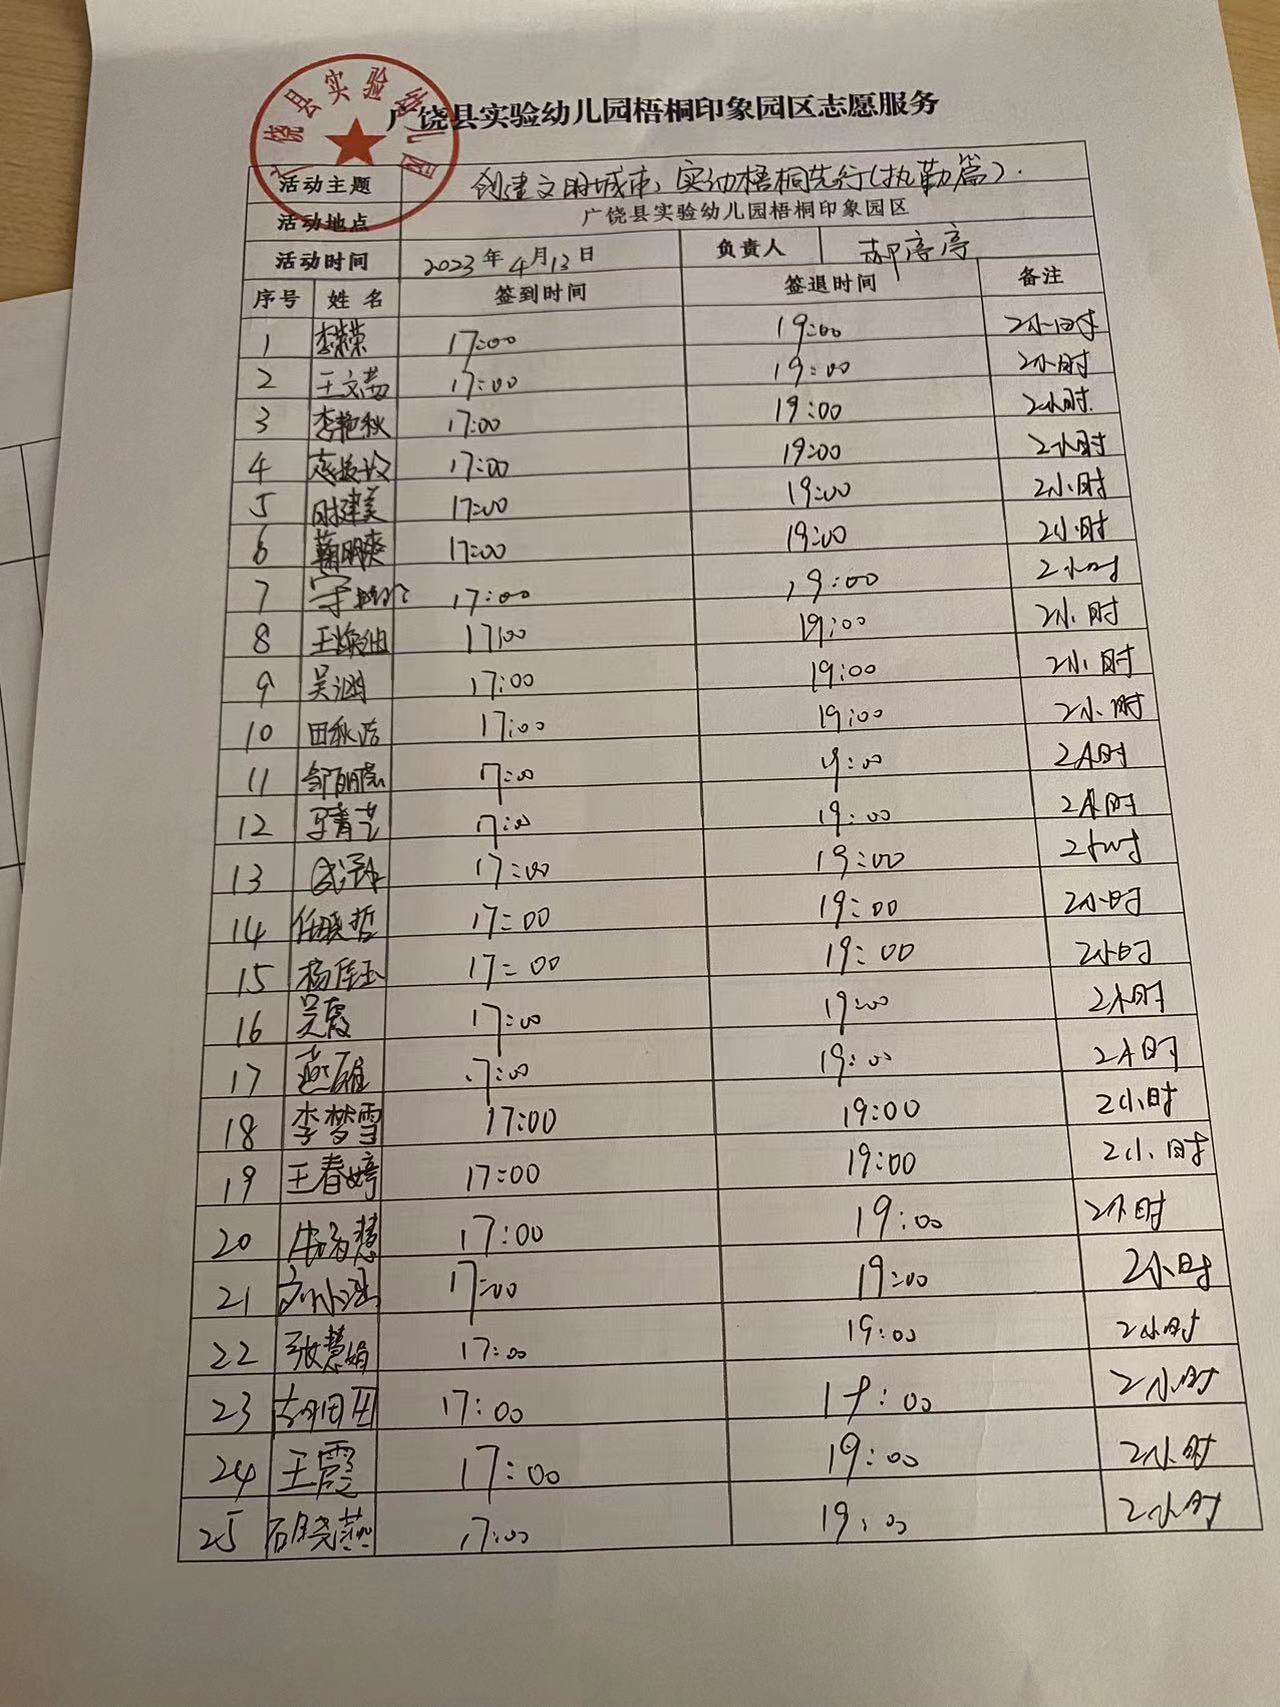 广饶县实验幼儿园
广饶县实验幼儿园梧桐印象园区志愿服务
活动主题 创建文明城市，实幼梧桐先行(执勤篇).
活动地点 广饶县实验幼儿园梧桐印象园区
活动时间 2023年4月13日 负责人 郝亭亭
序号 姓名 签到时间 签退时间 备注
1 李荣荣 17:00 19:00 2小时
2 王文茜 17:00 19:00 2小时
3 李艳秋 17:00 19:00 2小时
4 17:00 19:00 2小时
5 时建美 17:00 19:00 2小时
6 鞠明爽 17:00 19:00 2小时
7 17:00 19:00 2小时
8 17:00 19:00 2小时
9 吴涵 17:00 19:00 2小时
10 田秋洁 17:00 19:00 2小时
11 17:00 19:00 2小时
12 17:00 19:00 2小时
13 17:00 19:00 2小时
14 任晓哲 17:00 19:00 2小时
15 杨佳玉 17:00 19:00 2小时
16 吴霞 17:00 19:00 2小时
17 17:00 19:00 2小时
18 李梦雪 17:00 19:00 2小时
19 王春婷 17:00 19:00 2小时
20 17:00 19:00 2小时
21 17:00 19:00 2小时
22 张慧娟 17:00 19:00 2小时
23 17:00 19:00 2小时
24 王霞 17:00 19:00 2小时
25 石晓燕 17:00 19:00 2小时